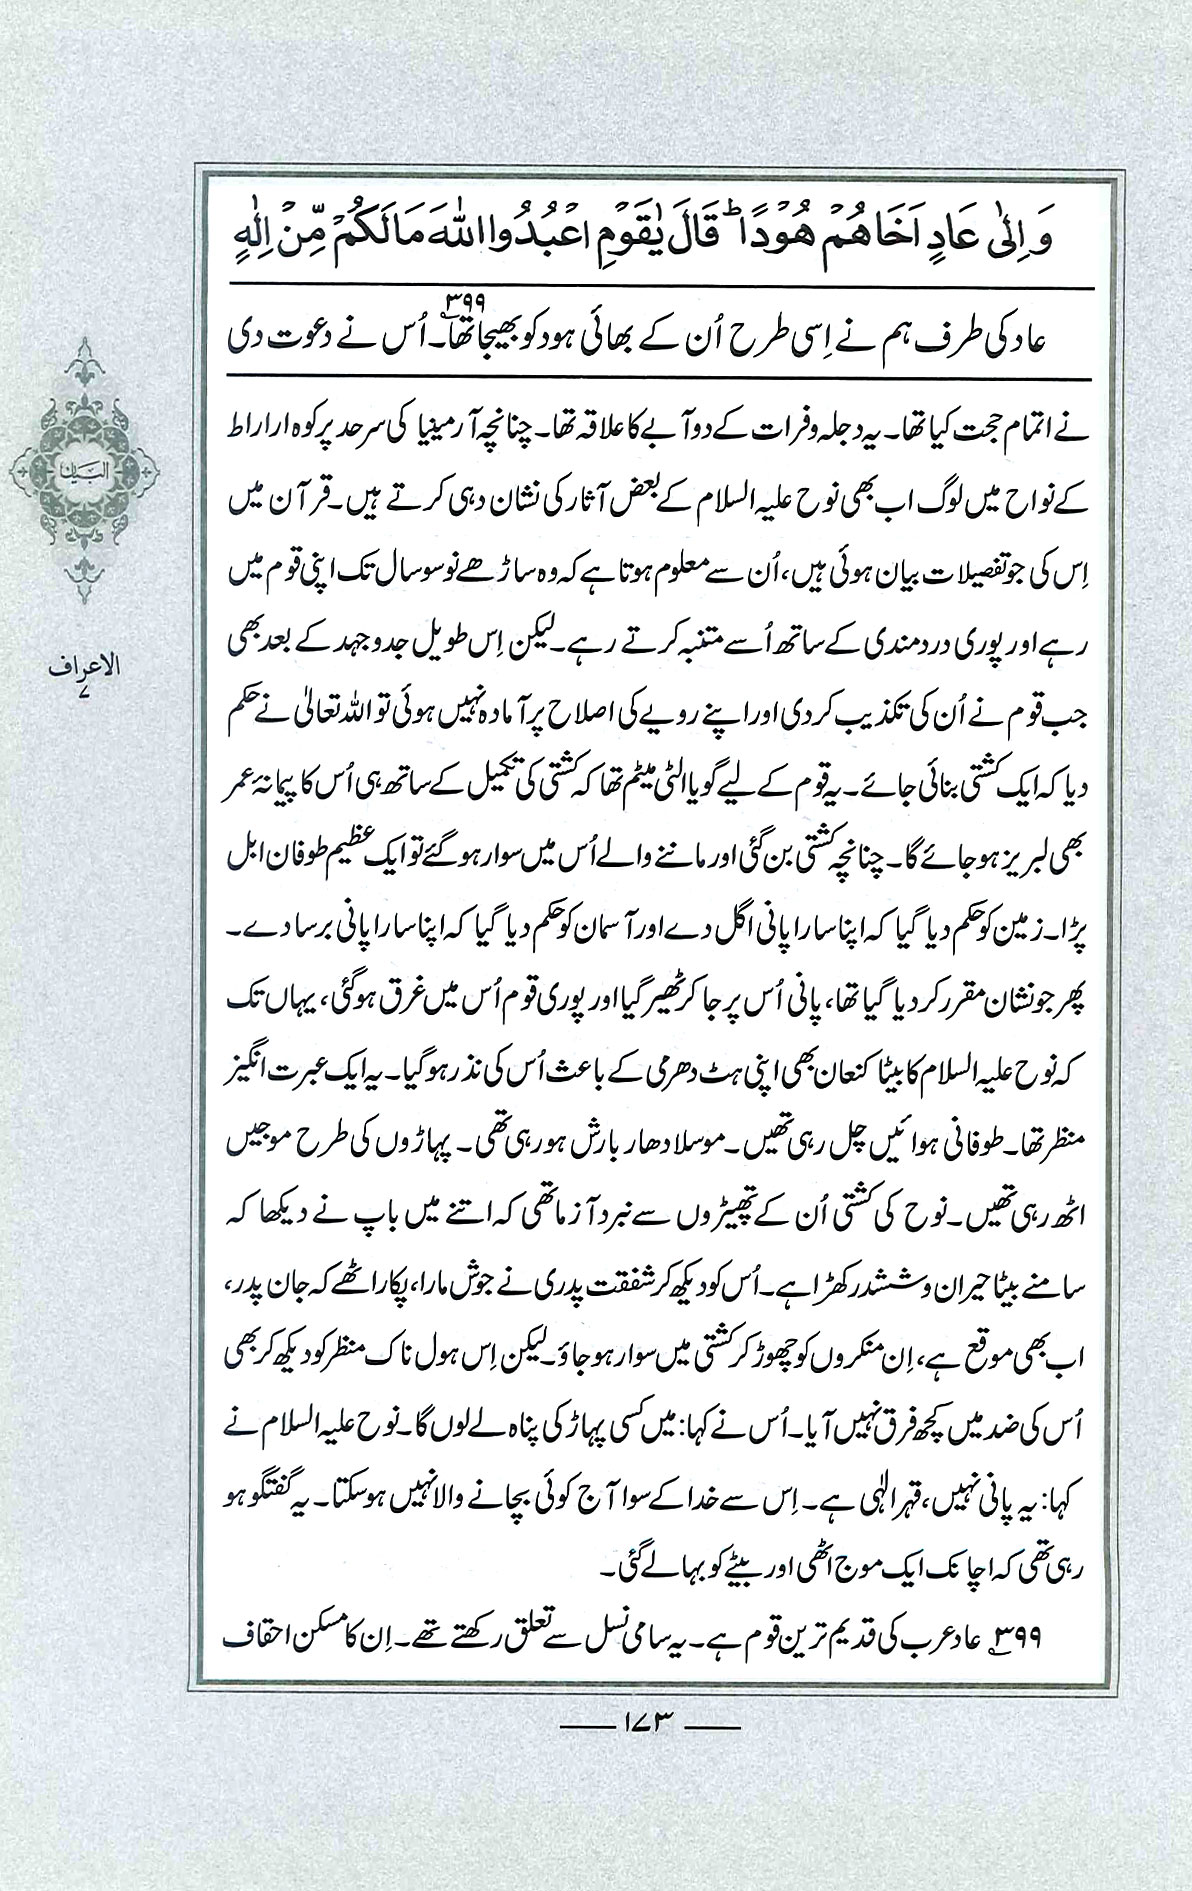 وَ اِلٰی عَادٍ اَخَاهُمْ هُوْدًا ؕ قَالَ یٰقَوْمِ اعْبُدُوا اللّٰهَ مَا لَكُمْ مِّنْ اِلٰهٍ
عاد کی طرف ہم نے اِسی طرح اُن کے بھائی ہود کو بھیجا تھا۳۹۹۔ اُس نے دعوت دی
نے اتمام حجت کیا تھا۔ یہ دجلہ و فرات کے دوآبے کا علاقہ تھا۔ چنانچہ آرمینیا کی سرحد پر کوہ اراراط
کے نواح میں لوگ اب بھی نوح علیہ السلام کے بعض آثار کی نشان دہی کرتے ہیں۔ قرآن میں
اِس کی جو تفصیلات بیان ہوئی ہیں، اُن سے معلوم ہوتا ہے کہ وہ ساڑھے نو سو سال تک اپنی قوم میں
رہے اور پوری دردمندی کے ساتھ اُسے متنبہ کرتے رہے۔ لیکن اِس طویل جدوجہد کے بعد بھی
جب قوم نے اُن کی تکذیب کر دی اور اپنے رویے کی اصلاح پر آمادہ نہیں ہوئی تو اللہ تعالیٰ نے حکم
دیا کہ ایک کشتی بنائی جائے۔ یہ قوم کے لیے گویا الٹی میٹم تھا کہ کشتی کی تکمیل کے ساتھ ہی اُس کا پیمانۂ عمر
بھی لبریز ہو جائے گا۔ چنانچہ کشتی بن گئی اور ماننے والے اُس میں سوار ہو گئے تو ایک عظیم طوفان ابل
پڑا۔ زمین کو حکم دیا گیا کہ اپنا سارا پانی اگل دے اور آسمان کو حکم دیا گیا کہ اپنا سارا پانی برسا دے۔
پھر جو نشان مقرر کر دیا گیا تھا، پانی اُس پر جا کر ٹھیر گیا اور پوری قوم اُس میں غرق ہو گئی، یہاں تک
کہ نوح علیہ السلام کا بیٹا کنعان بھی اپنی ہٹ دھرمی کے باعث اُس کی نذر ہو گیا۔ یہ ایک عبرت انگیز
منظر تھا۔ طوفانی ہوائیں چل رہی تھیں۔ موسلا دھار بارش ہو رہی تھی۔ پہاڑوں کی طرح موجیں
اٹھ رہی تھیں۔ نوح کی کشتی اُن کے تھپیڑوں سے نبردآزما تھی کہ اتنے میں باپ نے دیکھا کہ
سامنے بیٹا حیران و ششدر کھڑا ہے۔ اُس کو دیکھ کر شفقت پدری نے جوش مارا، پکار اٹھے کہ جان پدر،
اب بھی موقع ہے، اِن منکروں کو چھوڑ کر کشتی میں سوار ہو جاؤ۔ لیکن اِس ہول ناک منظر کو دیکھ کر بھی
اُس کی ضد میں کچھ فرق نہیں آیا۔ اُس نے کہا: میں کسی پہاڑ کی پناہ لے لوں گا۔ نوح علیہ السلام نے
کہا: یہ پانی نہیں، قہر الٰہی ہے۔ اِس سے خدا کے سوا آج کوئی بچانے والا نہیں ہو سکتا۔ یہ گفتگو ہو
رہی تھی کہ اچانک ایک موج اٹھی اور بیٹے کو بہا لے گئی۔
۳۹۹ عاد عرب کی قدیم ترین قوم ہے۔ یہ سامی نسل سے تعلق رکھتے تھے۔ اِن کا مسکن احقاف
البیان
الاعراف
۷
۱۷۳